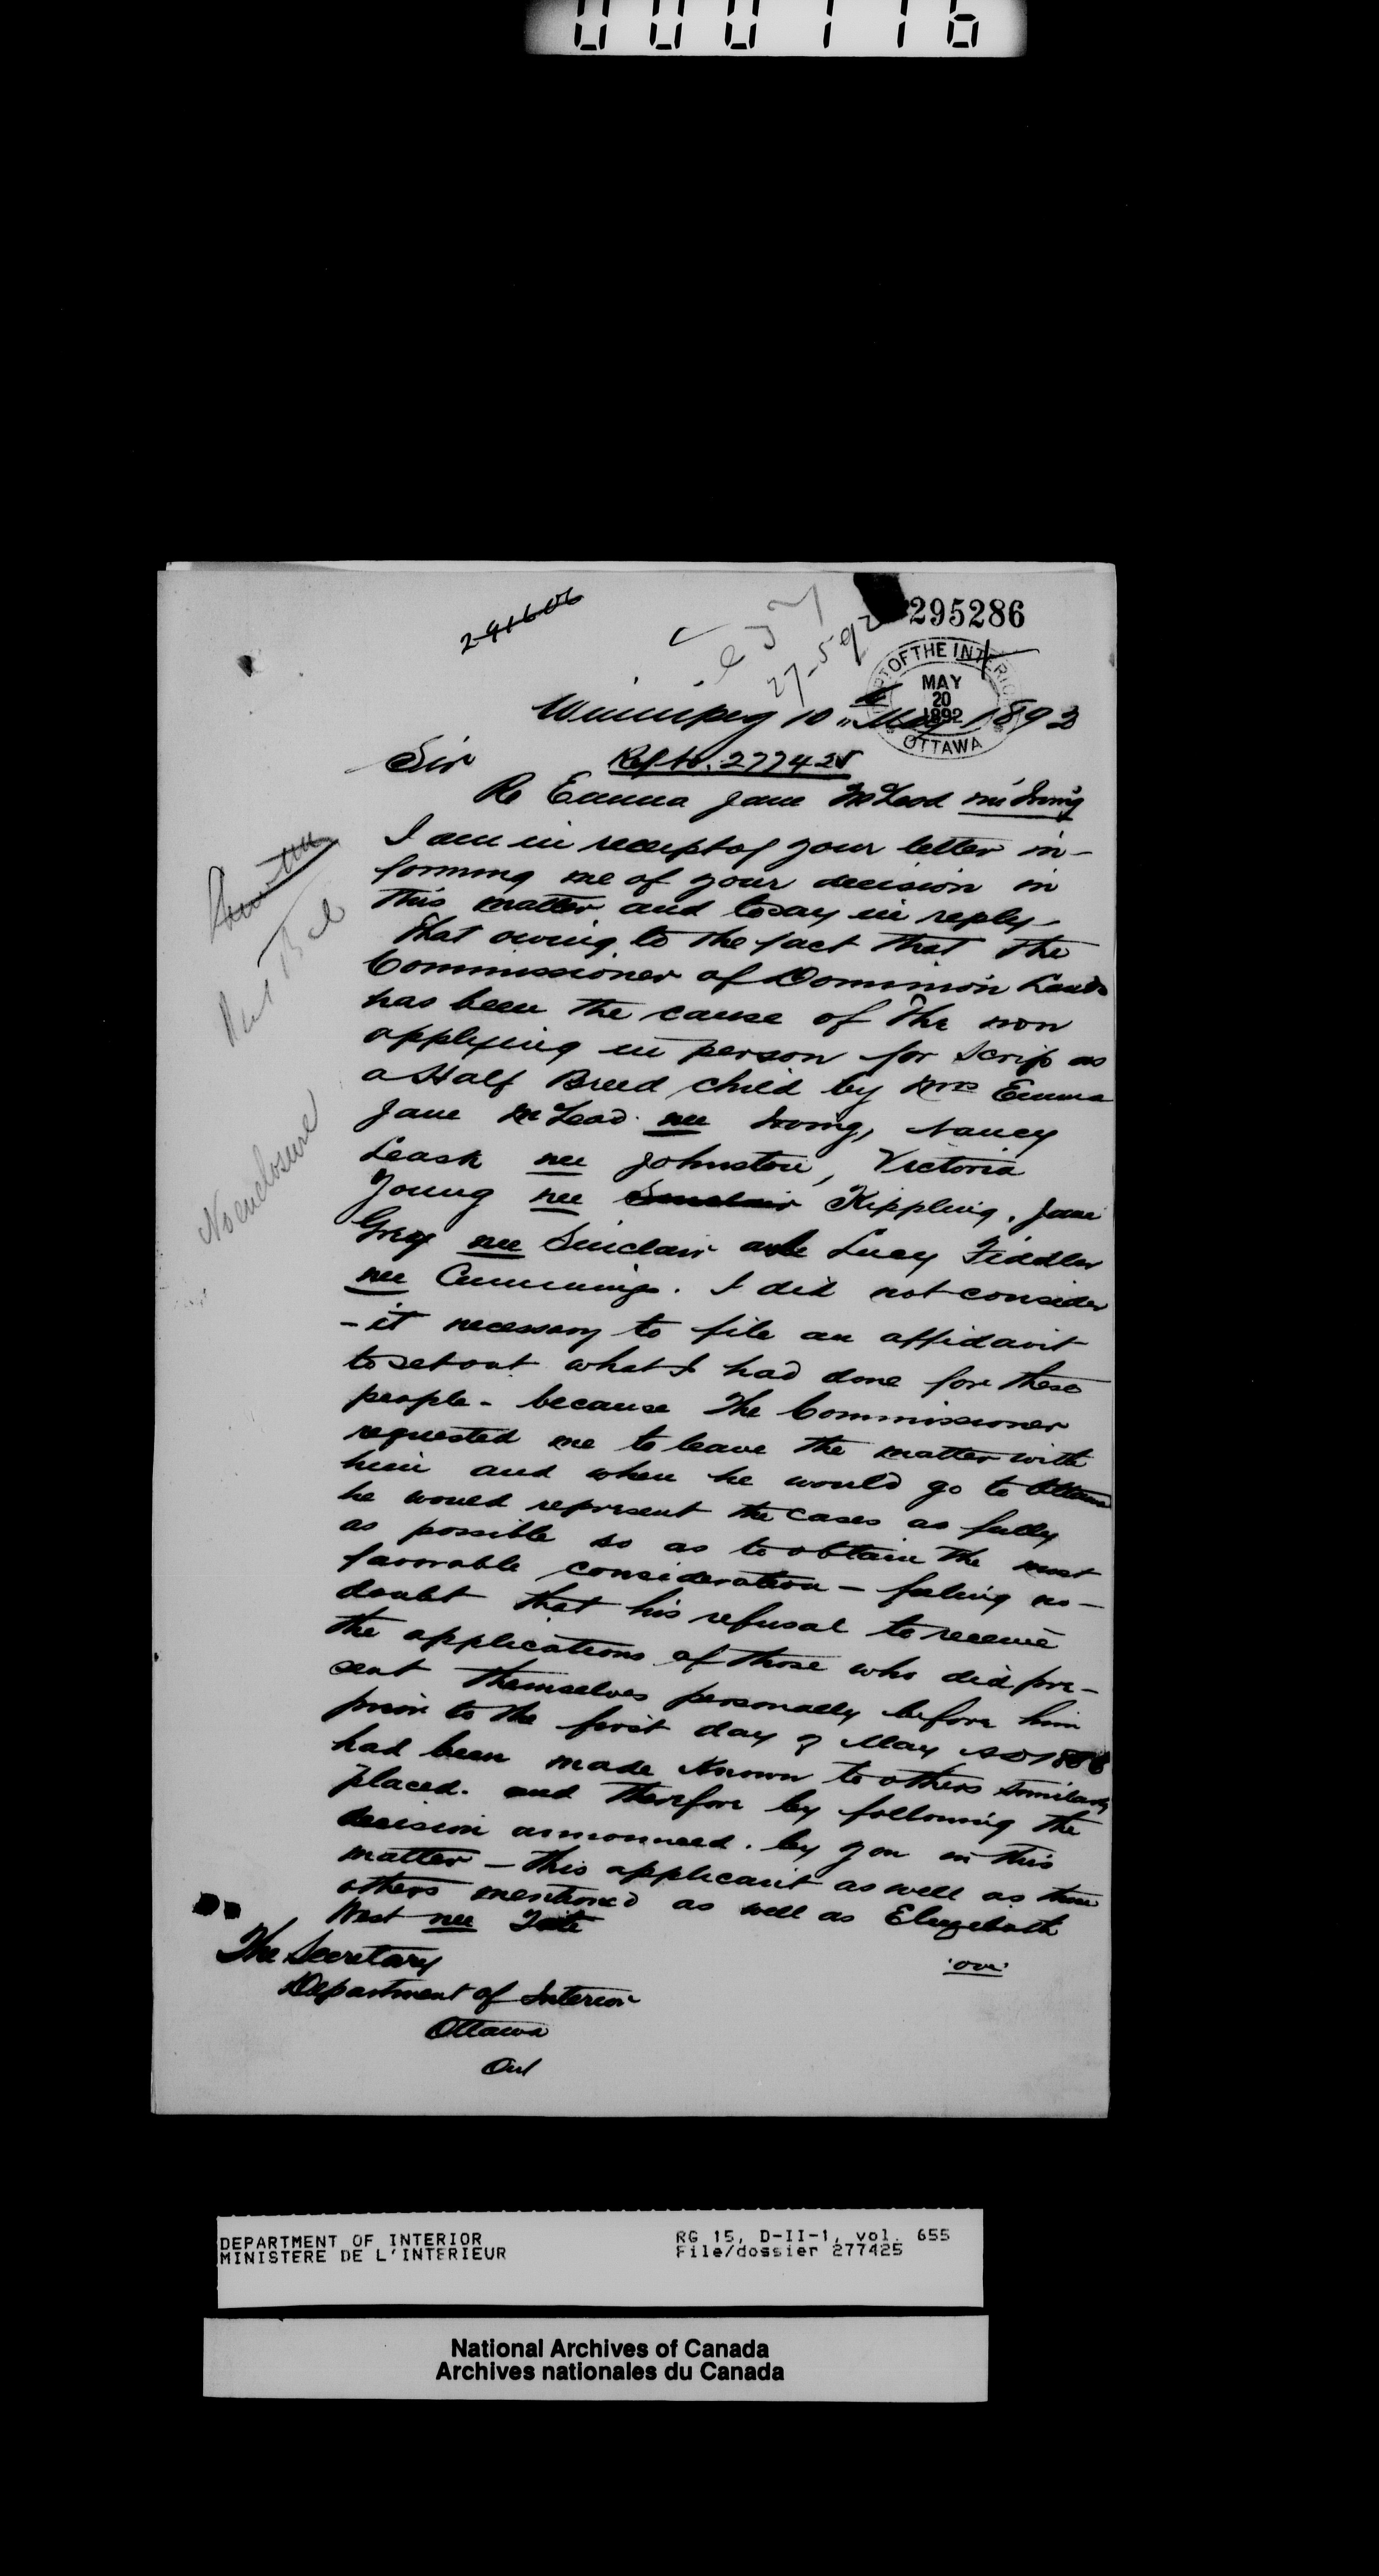 000116
291606
295286
27-5-92
DEPT OF THE INTERIOR
MAY
20
1892
OTTAWA
Winnipeg 10th May 1892
Sir
Ref to. 277425
Re Emma Jane McLeod née Irving
I am in receipt of your letter in-
forming me of your decision in
this matter and to say in reply -
That owing to the fact that the
Commissioner of Dominion Lands
has been the cause of the non
applying in person for scrip as
a Half Breed child by Mrs Emma
Jane McLeod nee Irving, Nancy
Leask nee Johnston, Victoria
Young nee Sinclair Kippling, Jane
Grey nee Sinclair and Lucy Fiddler
nee Cummings. I did not consider
- it necessary to file an affidavit
to set out what I had done for these
people - because the Commissioner
requested me to leave the matter with
him and when he would go to Ottawa
he would represent the cases as fully
as possible so as to obtain the most
favorable consideration - feeling no -
doubt that his refusal to receive
the applications of those who did pre-
sent themselves personally before him
prior to the first day of May AD 1886
had been made known to others similarly
placed. and therefore by following the
decision announced. by you in this
matter - this applicant as well as those
others mentioned as well as Elizebeth
West nee Tate
over
The Secretary
Department of Interior
Ottawa
Ont
No enclosure
DEPARTMENT OF INTERIOR
MINISTERE DE L'INTERIEUR
RG 15, D-II-1, vol. 655
File/dossier 277425
National Archives of Canada
Archives nationales du Canada